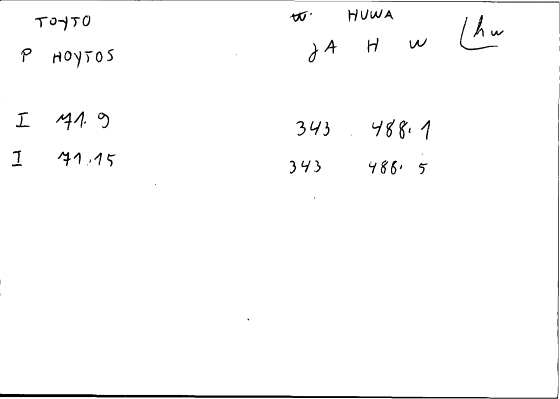 ΤΟΥΤΟ HUWA
Ρ ΗΟΥΤΟS JA H W hw
I 71.9 343 488.1
I 71.15 343 488.5